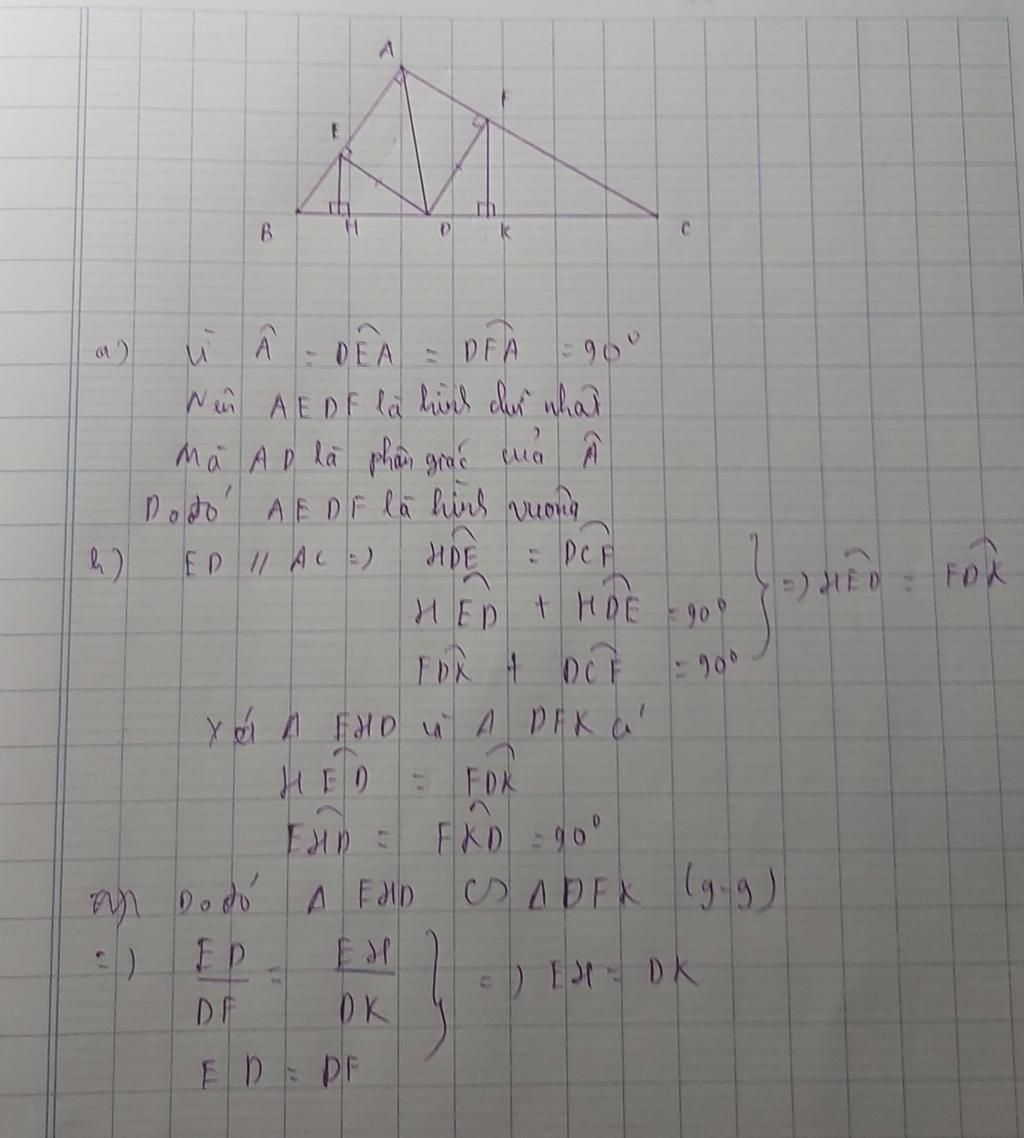 A
E
F
B
H
D
K
C
a) Vì Â = DÊA = DF̂A = 90°
Nên AEDF là hình chữ nhật
Mà AD là phân giác của Â
Do đó AEDF là hình vuông
b) ED // AC => HD̂E = DĈF
HÊD + HD̂E = 90° => HÊD = FD̂K
FD̂K + DĈF = 90°
Xét Δ EHD và Δ DFK có
HÊD = FD̂K
EĤD = FK̂D = 90°
Do đó Δ EHD ∽ Δ DFK (g-g)
=> ED/DF = EH/DK => EH = DK
ED = DF